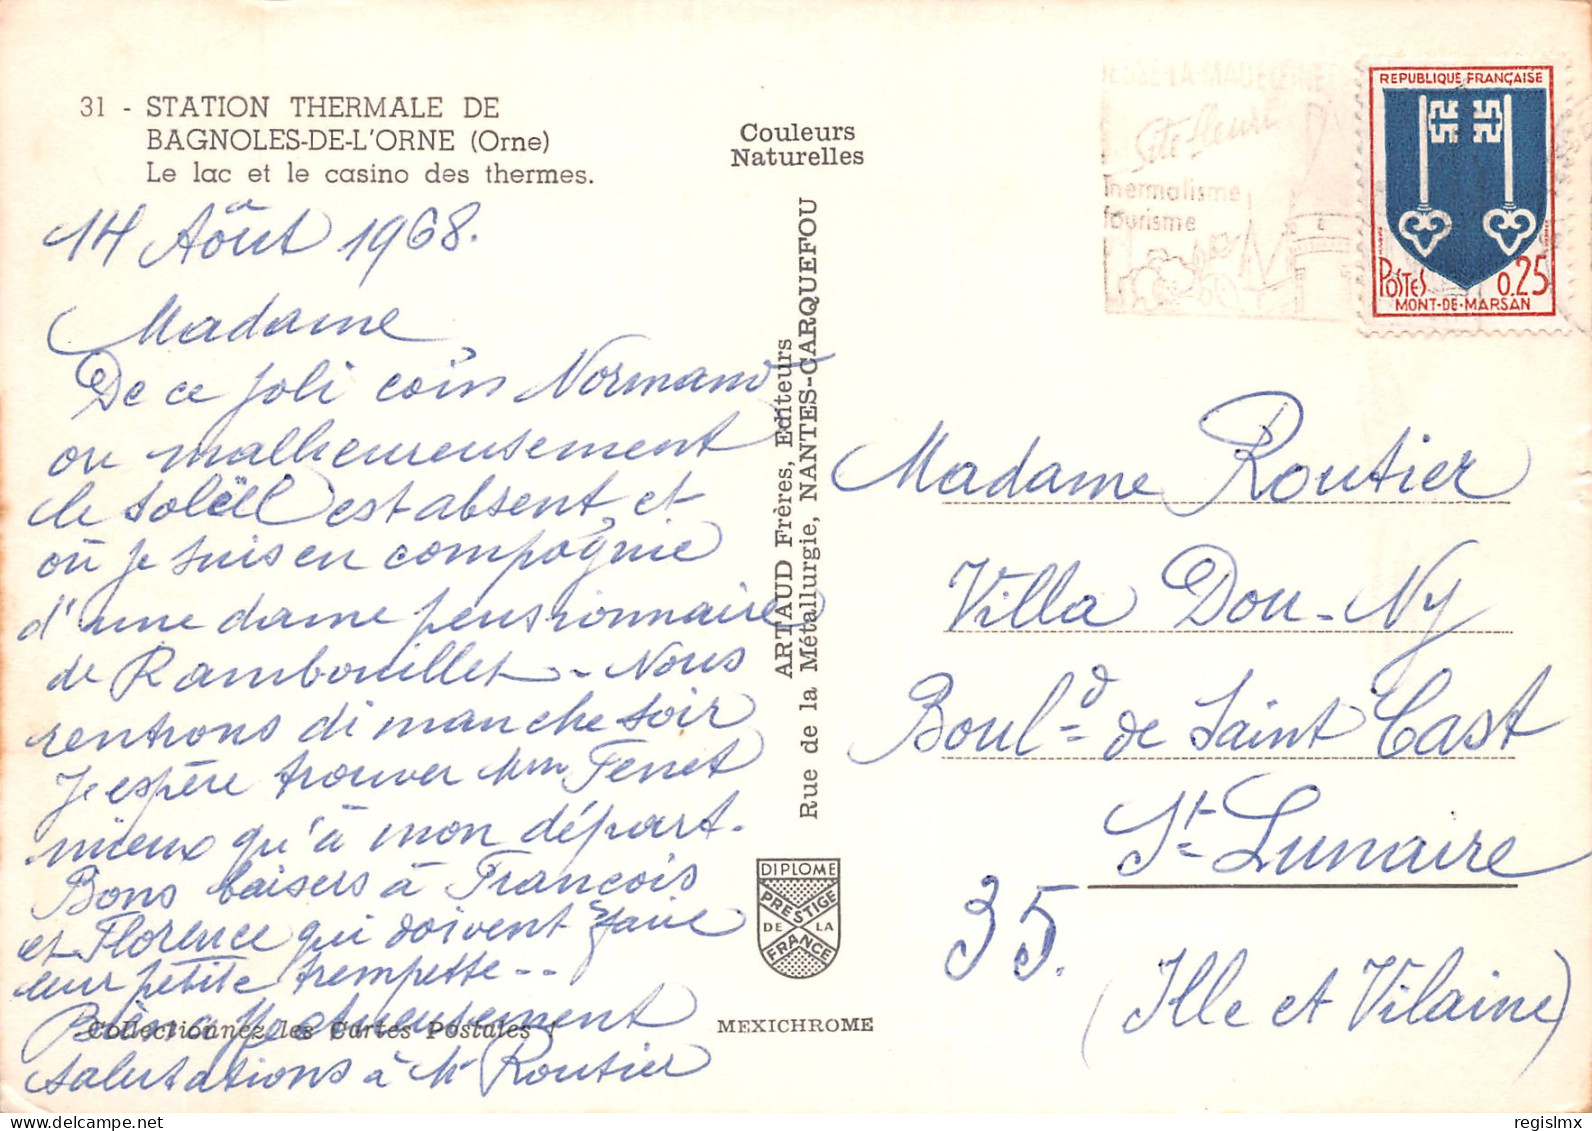 31 - STATION THERMALE DE
BAGNOLES-DE-L'ORNE (Orne)
Le lac et le casino des thermes.
14 Août 1968.
Madame
De ce joli coin Normand
ou malheureusement
le soleïl est absent, et
où je suis en compagnie
d'une dame pensionnaire
de Rambouillet - Nous
rentrons dimanche soir
J'espère trouver Mm Fenet
mieux qu'à mon départ.
Bons baisers à François
et Florence qui doivent faire
leur petite trempette --
Bien affectueusement
salutations à Mr Routier
Collectionnez les Cartes Postales !
Couleurs
Naturelles
ARTAUD Frères, Editeurs
Rue de la Métallurgie, NANTES-CARQUEFOU
DIPLOME
PRESTIGE
DE LA
FRANCE
MEXICHROME
LA MADELEINE
Site fleuri
Thermalisme
Tourisme
REPUBLIQUE FRANÇAISE
POSTES 0.25
MONT-DE-MARSAN
Madame Routier
Villa Dou-Ny
Boul=d de Saint Cast
St- Lunaire
35.
(Ille et Vilaine)
regislmx